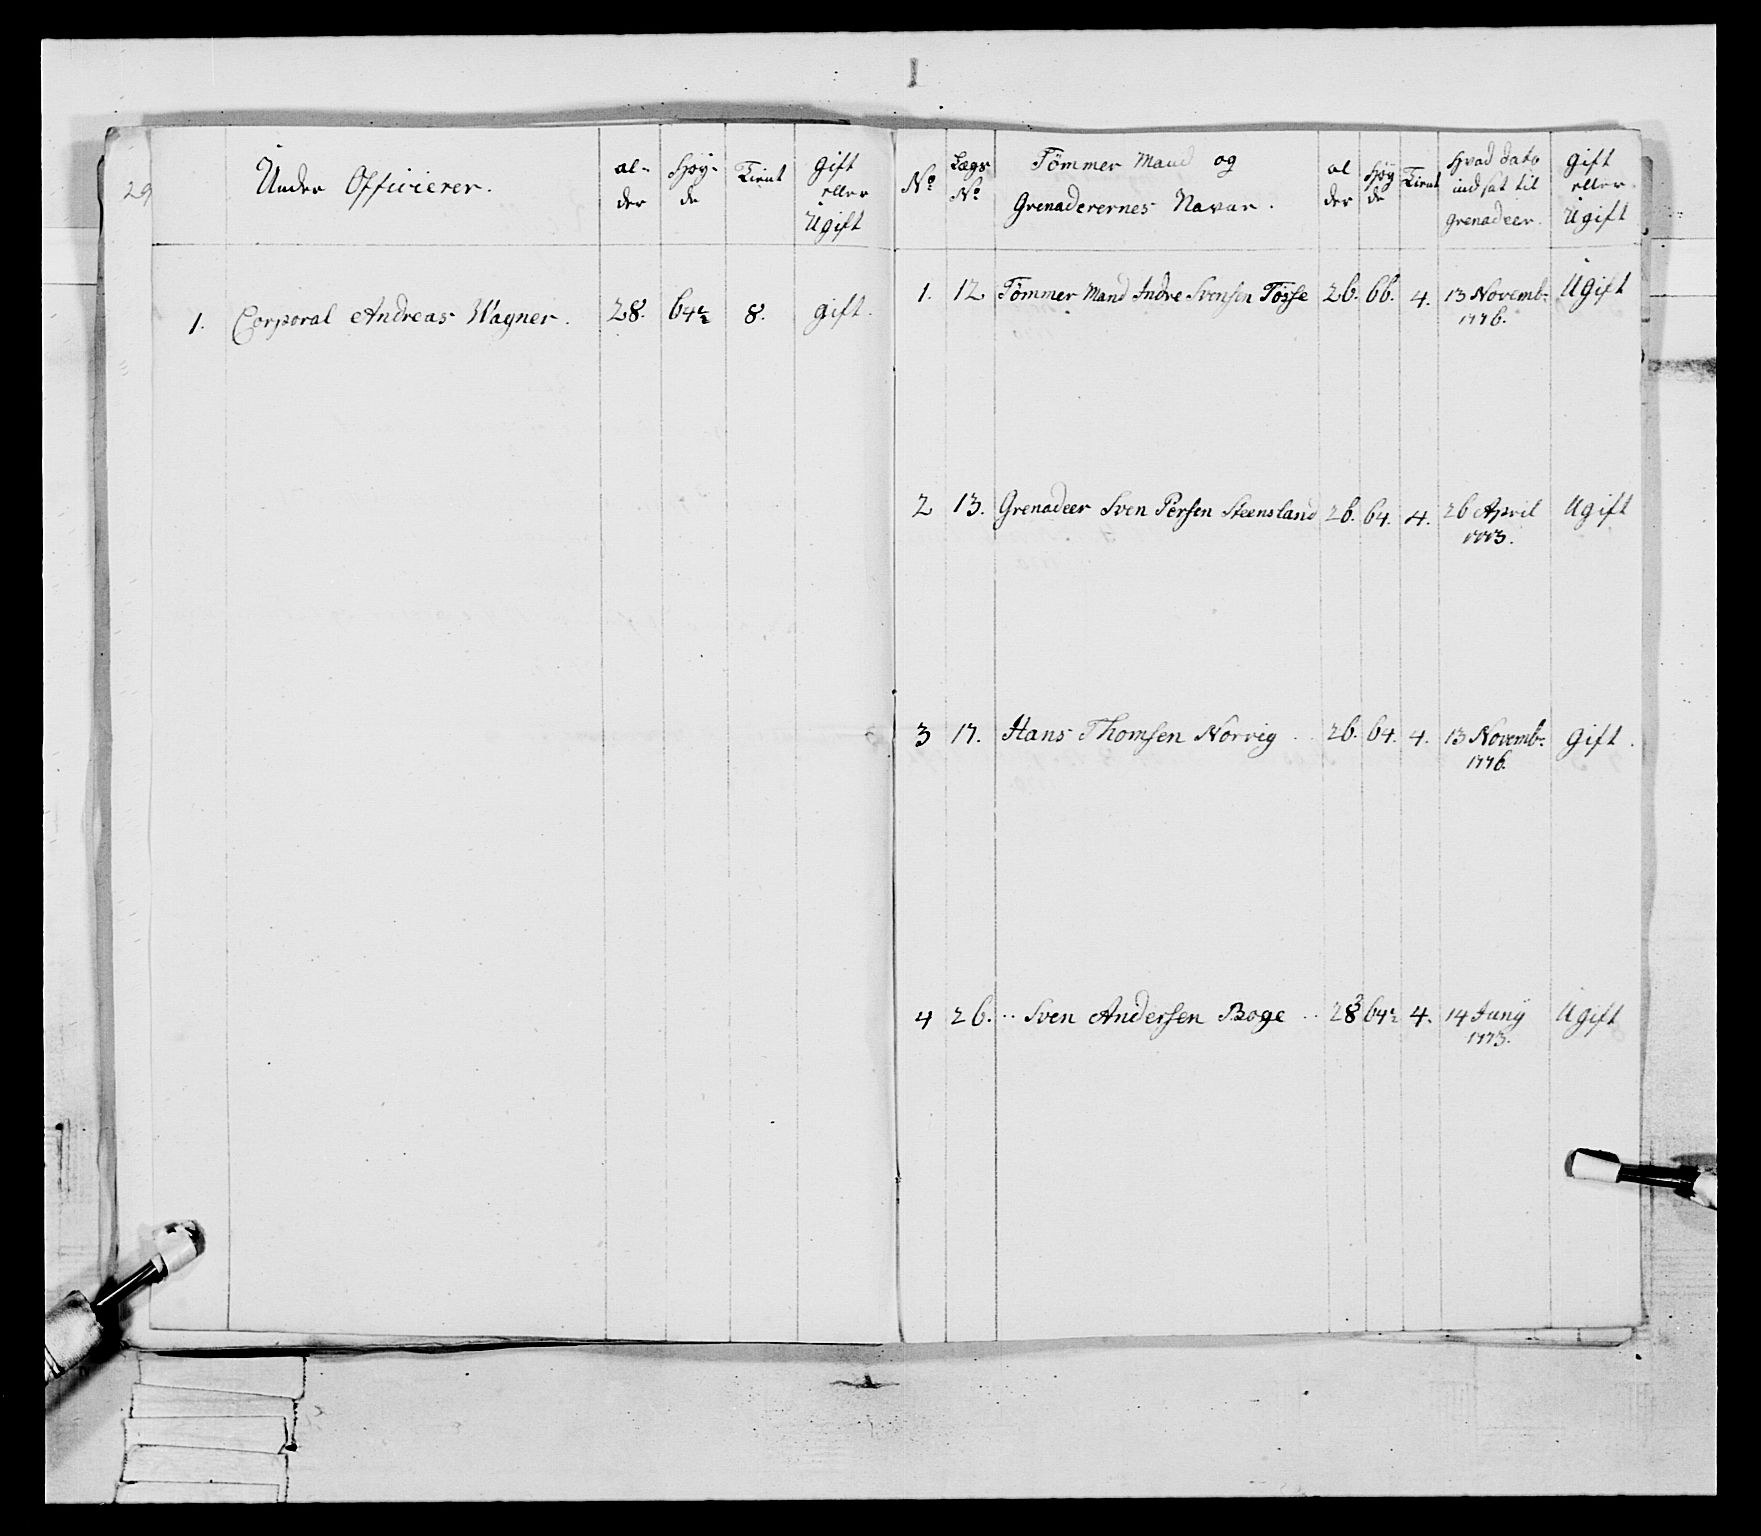 29
Under Officierer.
al-
der
Høy-
de
Tient
gift
eller
Ugift
1. Corporal Andreas Wagner. 28. 64½ 8. gift.
No
Lægs
No
Tömmer Mand og
Grenaderernes Navne.
al
der
Høy
de
Tient
Hvad dato
indsat til
grenadeer.
gift
eller
Ugift
1. 12 Tömmer Mand Indre Svensen Tösse 26. 66. 4. 13 Novemb: Ugift
1776.
2 13. Grenadeer Sven Persen Steensland 26. 64. 4. 26 April Ugift
1773.
3 17. Hans Thomsen Norvig 26. 64. 4. 13 Novemb: gift.
1776.
4 26. Sven Andersen Boge 28 64½ 4. 14 Juny Ugift
1773.